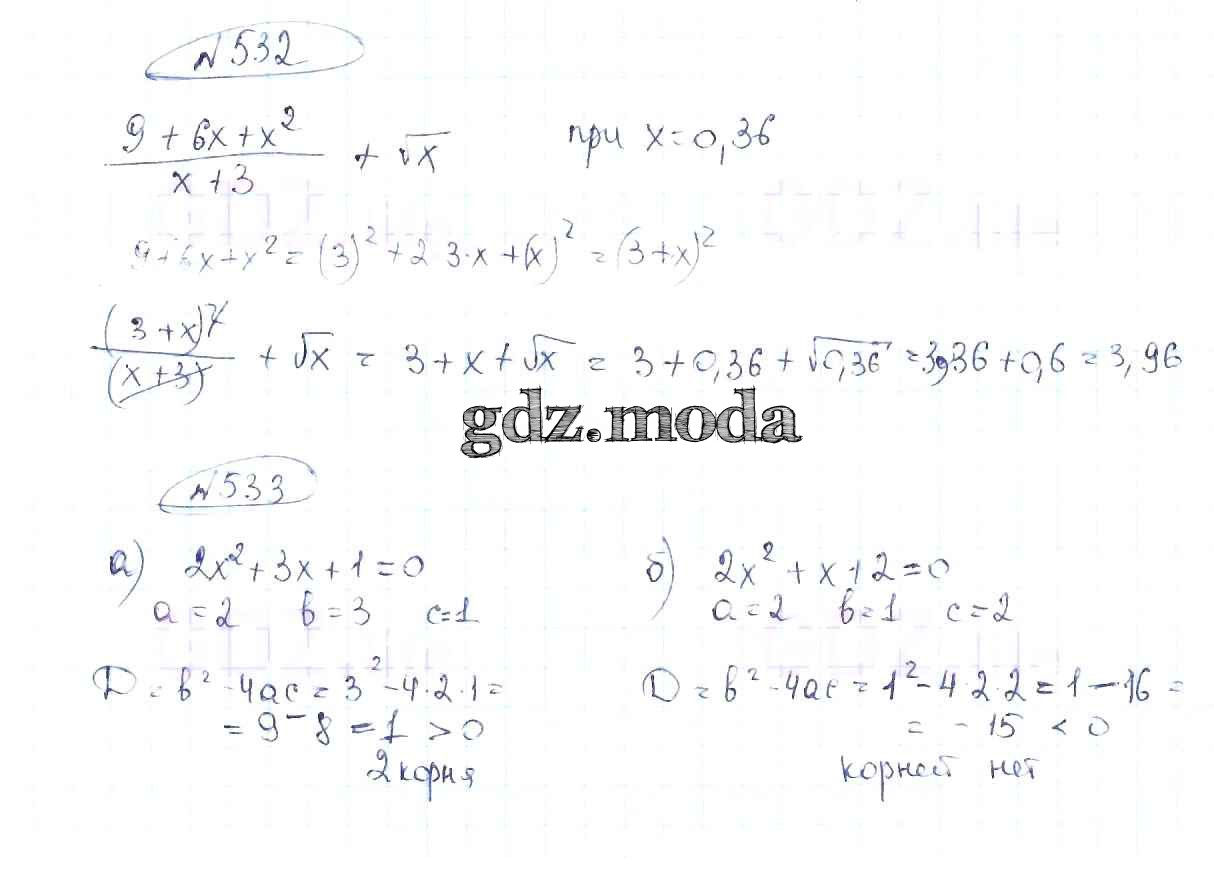 №532
9 + 6x + x²
x + 3
+ √x при x = 0,36
9 + 6x + x² = (3)² + 2 3·x + (x)² = (3+x)²
(3+x)²
(x+3)
+ √x = 3 + x + √x = 3 + 0,36 + √0,36 = 3,36 + 0,6 = 3,96
gdz.moda
№533
а) 2x² + 3x + 1 = 0
a = 2 b = 3 c = 1
D = b² - 4ac = 3² - 4·2·1 =
= 9 - 8 = 1 > 0
2 корня
б) 2x² + x + 2 = 0
a = 2 b = 1 c = 2
D = b² - 4ac = 1² - 4·2·2 = 1 - 16 =
= - 15 < 0
корней нет